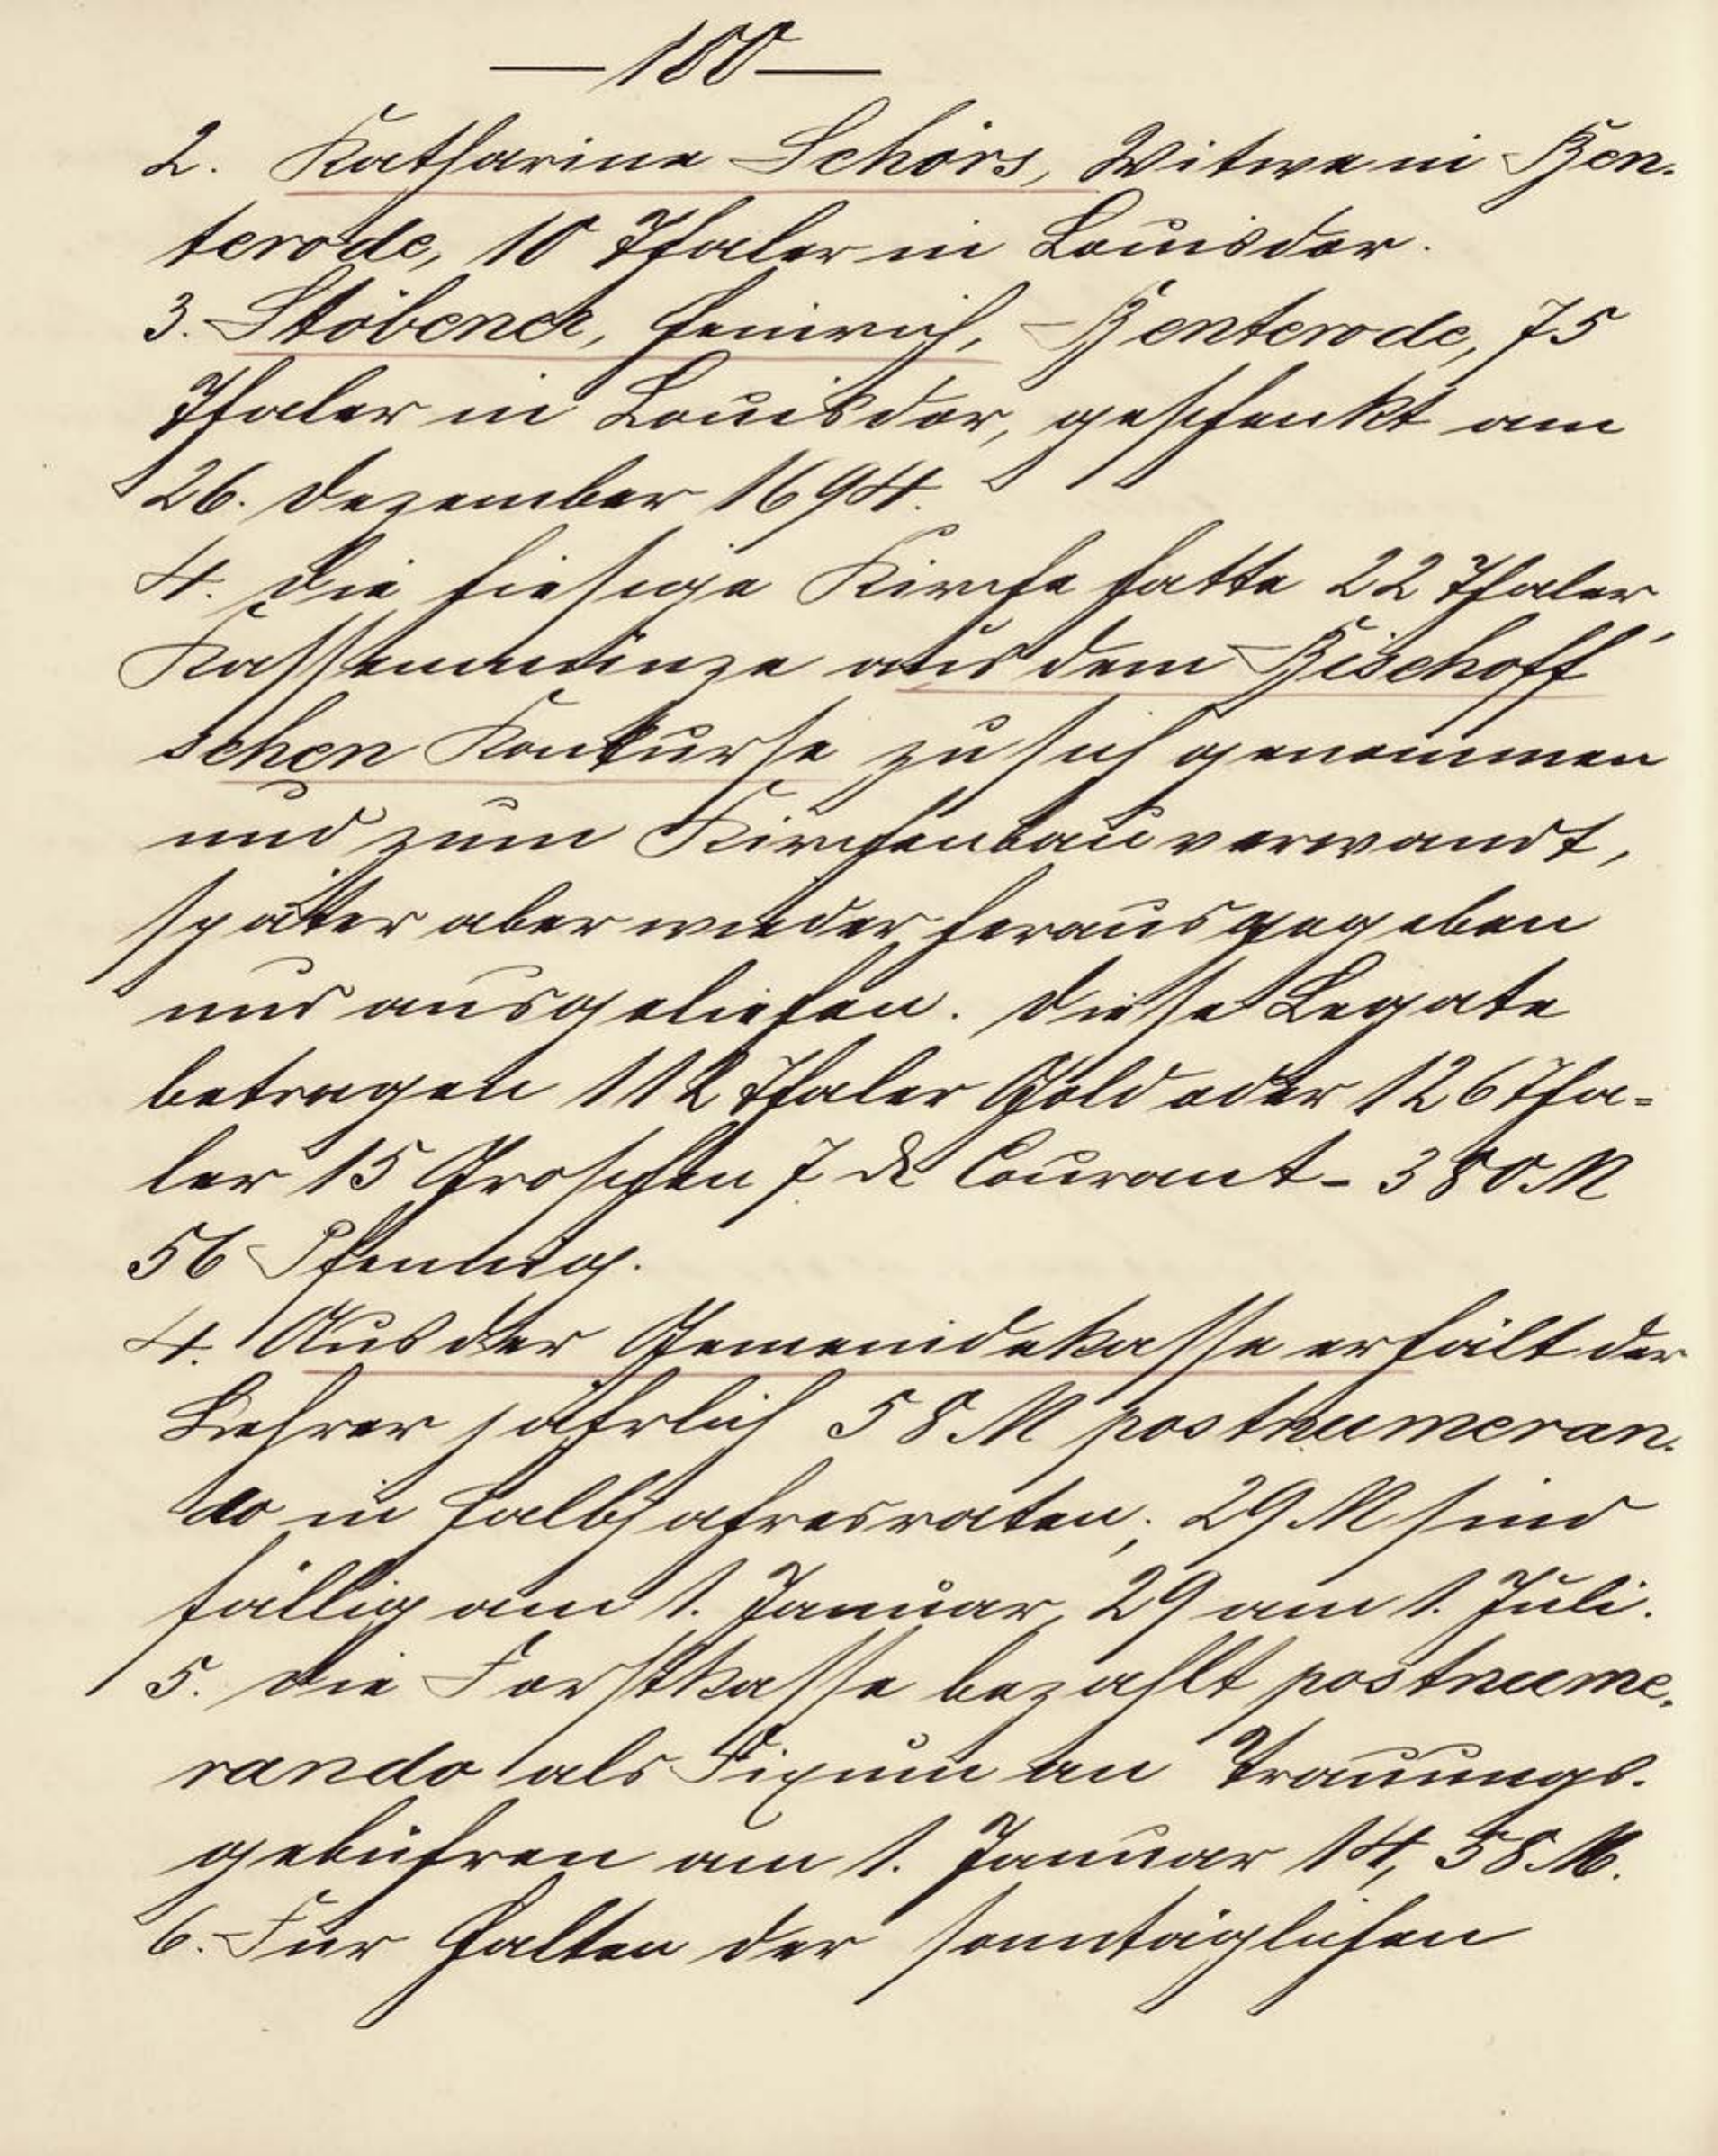 — 180 —
2. Katharina Schörs, Witwe in Ben-
terode, 10 Thaler in Louisdor.
3. Stöbener, Heinrich, Benterode, 75
Thaler in Louisdor, geschenkt am
26. Dezember 1694.
4. Die hiesige Kirche hatte 22 Thaler
Kassenmünze aus dem Bischoff'
schen Konkurse zu sich genommen
und zum Kirchenbau verwandt,
später aber wieder herausgegeben
und ausgeliehen. Diese Legate
betragen 112 Thaler Gold oder 126 Tha-
ler 15 Groschen 7 ₰ Courant - 380 M
56 Pfennig.
4. Aus der Gemeindekasse erhält der
Lehrer jährlich 58 M postnumeran-
do in Halbjahresraten; 29 M sind
fällig am 1. Januar, 29 am 1. Juli.
5. Die Forstkasse bezahlt postnume-
rando als Fixum an Trauungs-
gebühren am 1. Januar 14,58 M.
6. Für Halten der sonntäglichen